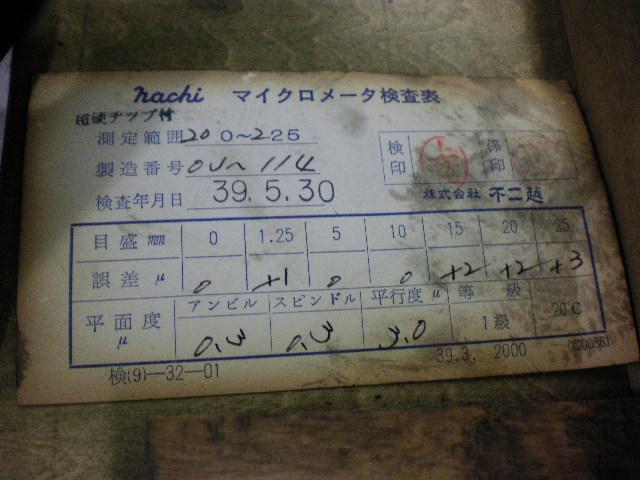 nachi マイクロメータ検査表
超硬チップ付
測定範囲 200~225
製造番号 0U~114
検査年月日 39.5.30
検印
係印
株式会社 不二越
目盛 mm 0 1.25 5 10 15 20 25
誤差 μ 0 +1 0 0 +2 +2 +3
平面度 μ アンビル スピンドル 平行度 μ 等級 20°C
0.3 0.3 3.0 1級
検(9)-32-01 39.3. 2000